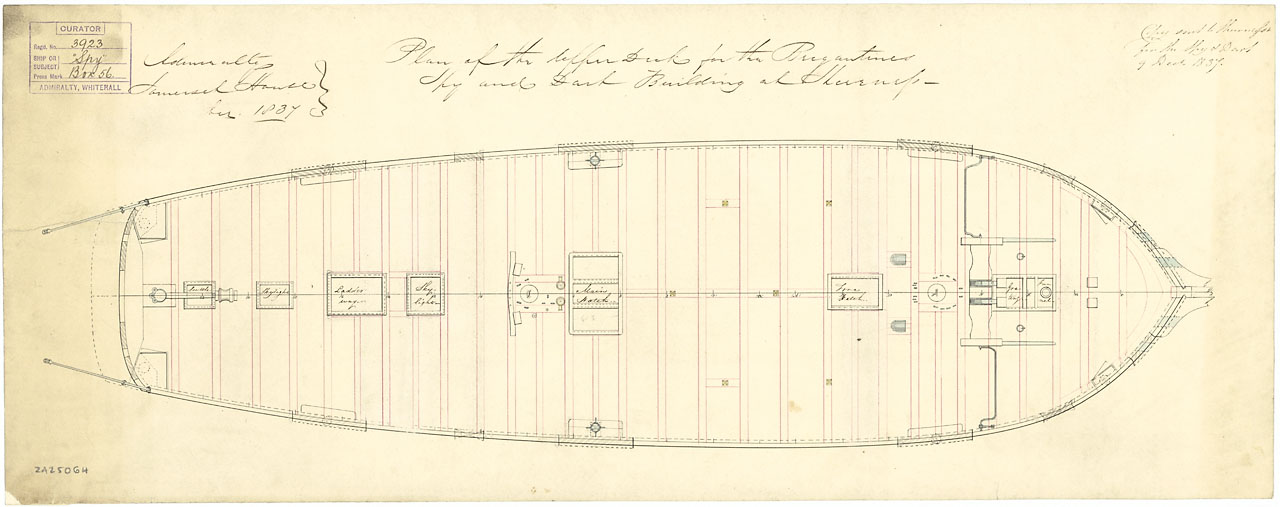 CURATOR
Regd. No. 3923
SHIP OR SUBJECT} "Spy"
Press Mark Box 56
ADMIRALTY, WHITEHALL
Admiralty
Somerset House
1837
Plan of the Upper Deck for the Brigantines
Spy and Dart Building at Sheerness
Copy sent to Sheerness
for the Spy & Dart
9 Decr 1837
Scuttle
Skylight
Ladder
way
Sky
light
Main
Hatch
Fore
Hatch
Fore
ZAZ5064